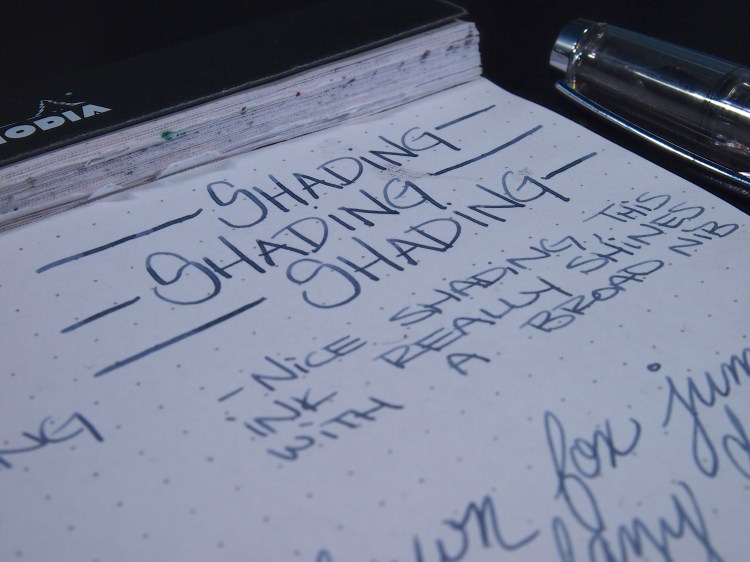 ODIA
SHADING
SHADING
SHADING
- NICE SHADING, THIS
INK REALLY SHINES
WITH A BROAD NIB
NG
own fox jum
lazy d